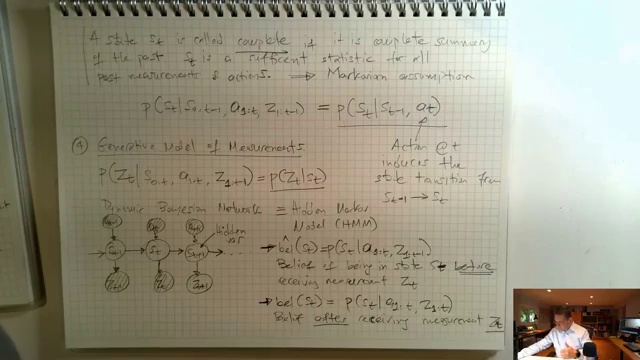 A state St is called complete if it is complete summary
of the past St is a sufficent statistic for all
past measurements & actions. ⟹ Markovian assumption
p(St|S0:t-1, a1:t, Z1:t-1) = p(St|St-1, at)
Action @t
induces the
state transition from
St-1 → St
④ Generative Model of Measurements
p(Zt|S0:t, a1:t, Z1:t-1) = p(Zt|St)
Dynamic Bayesian Network ≡ Hidden Markov
Model (HMM)
at-1 at at+1
Hidden
var
St-1 St St+1 ...
Zt-1 Zt Zt+1
→ bel(St) = p(St|a1:t, Z1:t-1)
Belief of being in state St before
receiving measurement Zt
→ bel(St) = p(St|a1:t, Z1:t)
Belief after receiving measurement Zt